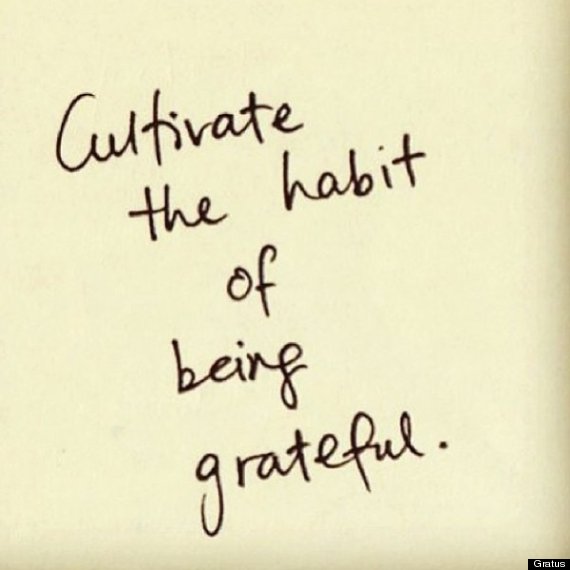 Cultivate
the habit
of
being
grateful.
Gratus